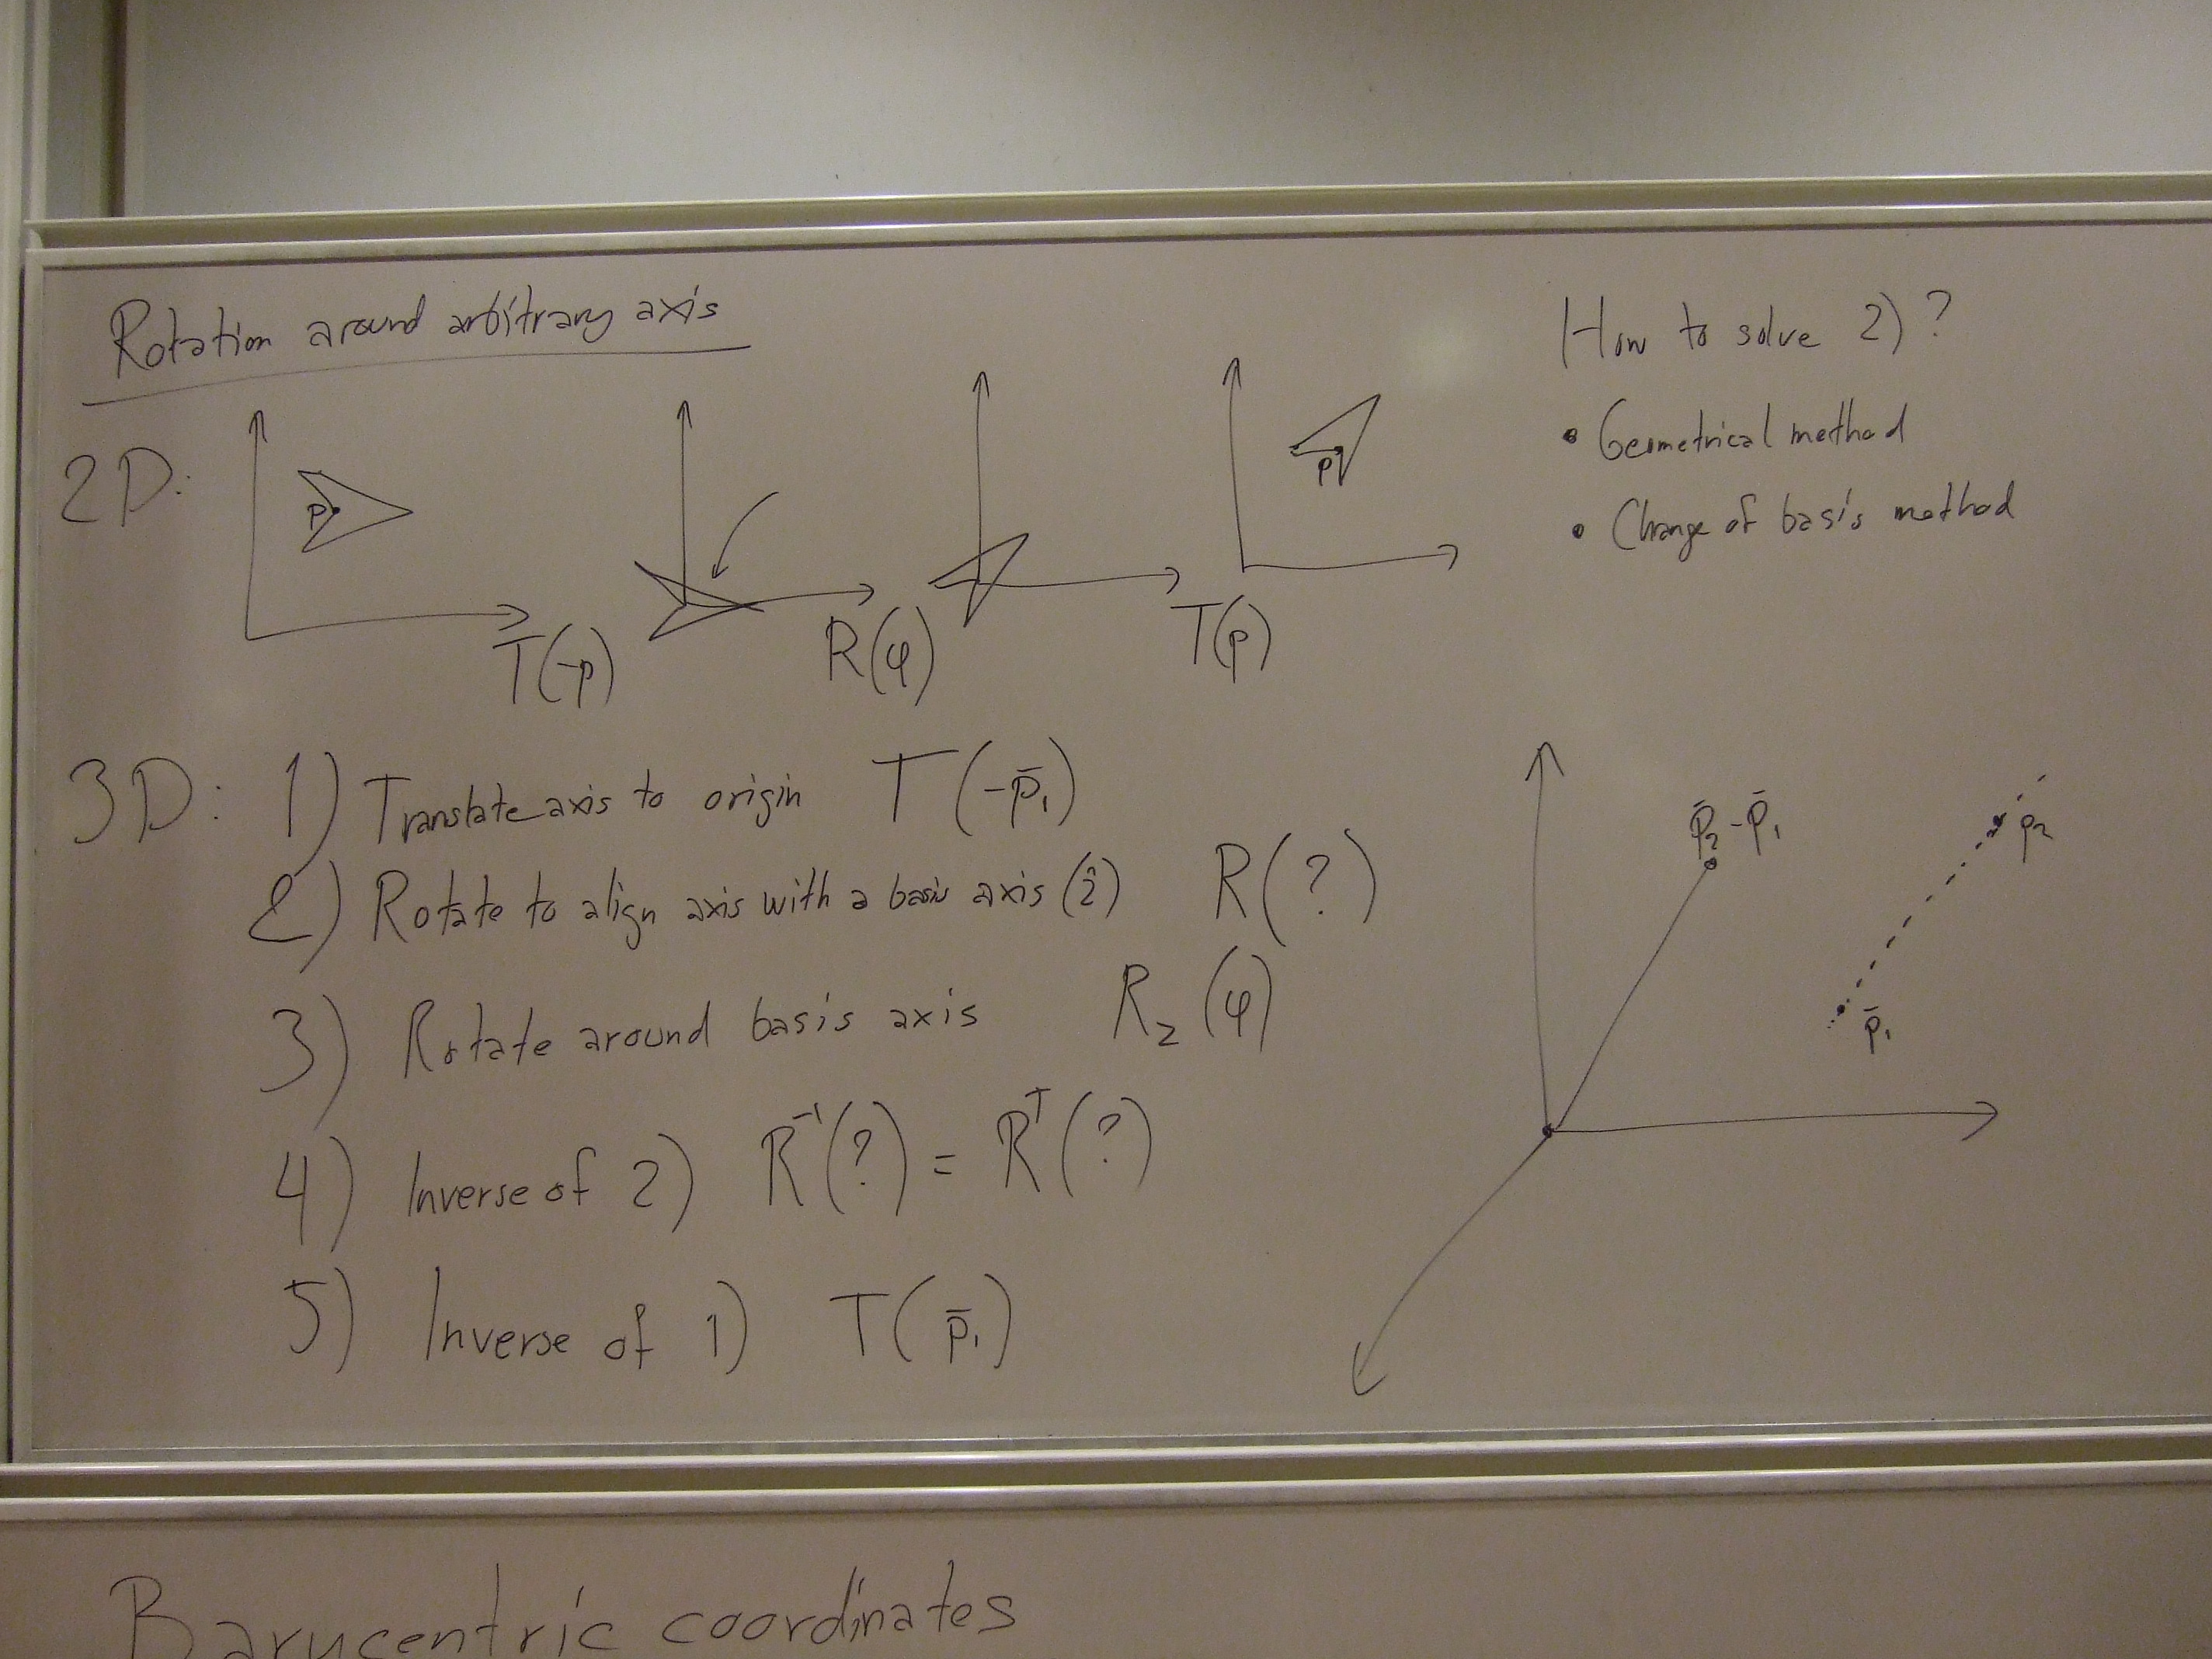 Rotation around arbitrary axis
2D:
p
T(-p)
R(φ)
T(p)
p
3D: 1) Translate axis to origin T(-p̄₁)
2) Rotate to align axis with a basis axis (ẑ) R(?)
3) Rotate around basis axis R_z(φ)
4) Inverse of 2) R⁻¹(?) = Rᵀ(?)
5) Inverse of 1) T(p̄₁)
How to solve 2)?
• Geometrical method
• Change of basis method
p̄₂-p̄₁
p₂
p̄₁
Barycentric coordinates